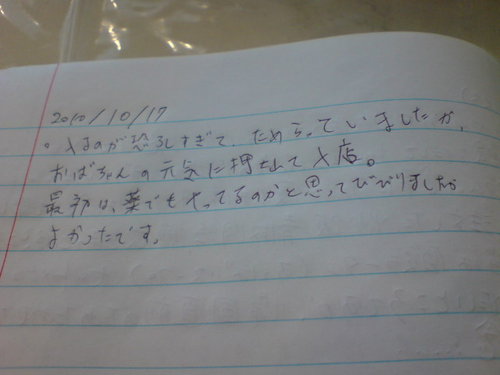 2010/10/17
。入るのが恐ろしすぎて、ためらっていましたが、
おばちゃんの元気に押されて入店。
最初は、薬でもやってるのかと思ってびびりましたが
よかったです。